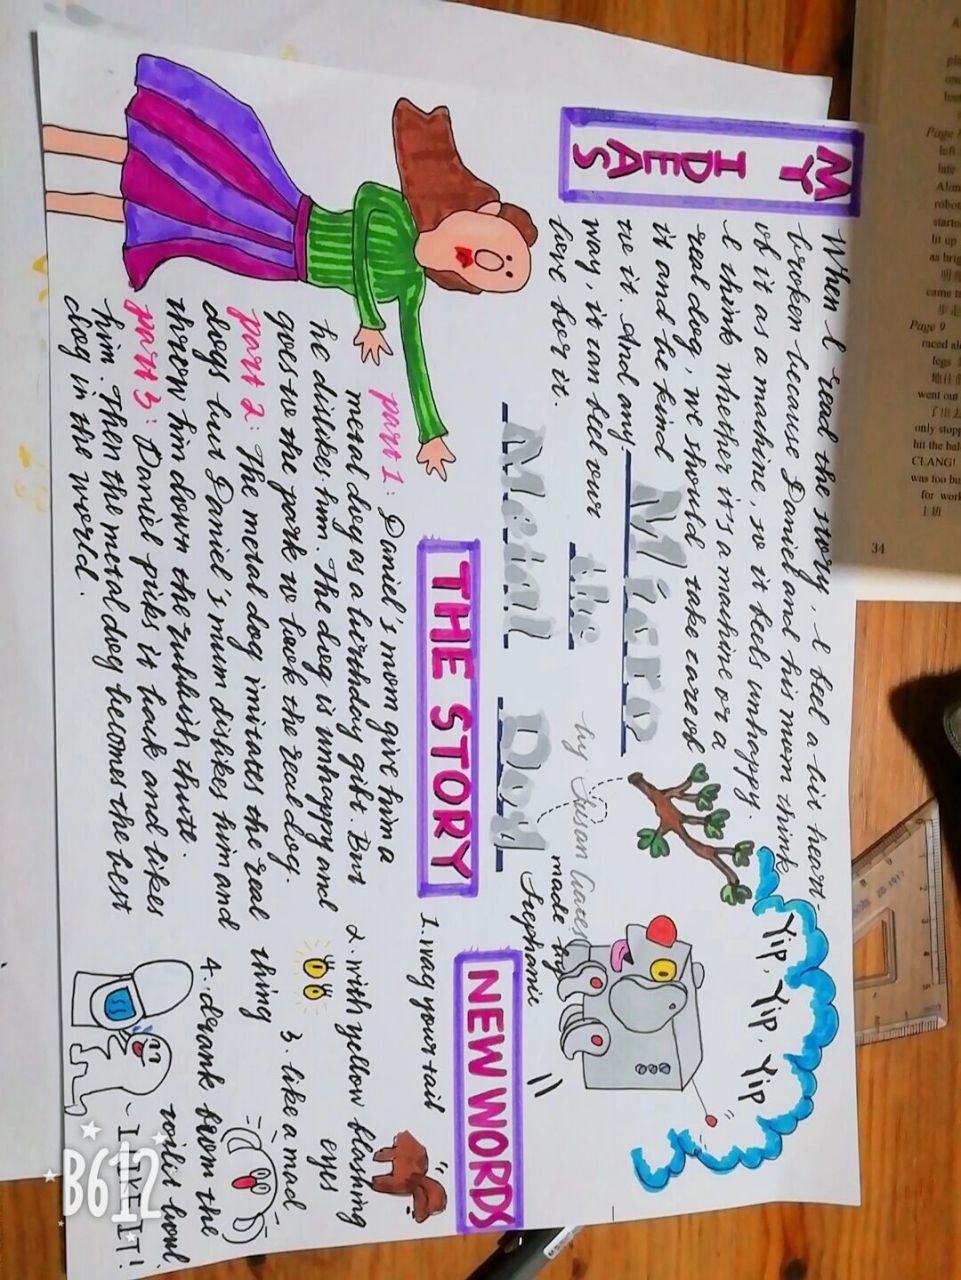 MY
IDEAS
When I read the story, I feel a bit heart-
broken because Daniel and his mom think
of it as a machine, so it feels unhappy.
I think whether it's a machine or a
real dog, we should take care of
it and be kind
to it. And any-
way, it can feel our
love for it.
Micro
the
Metal Dog
by Susan Gates
made by
Yip, Yip, Yip
THE STORY
part 1: Daniel's mom give him a
metal dog as a birthday gift. But
he dislikes him. The dog is unhappy and
goes to the park to look the real dog.
part 2: The metal dog imitates the real
dogs but Daniel's mum dislikes him and
threw him down the rubbish
part 3: Daniel piks it back and likes
him. Then the metal dog becomes the best
dog in the world.
NEW WORDS
1. wag your tail
2. with yellow flashing
eyes
3. like a mad
thing
4. drank from the
toilet bowl
~ I LIKE IT!
B612
Page
left
late
Alon
robot
starte
lit up
as brig
came t
Page 9
raced alo
legs
went out
only stopp
hit the bal
CLANG!
was too bu
for work
上班
34